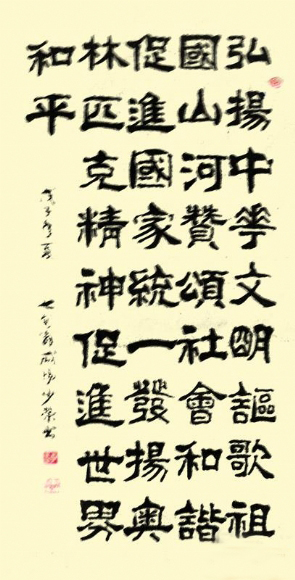 弘揚中華文明謳歌祖
國山河贊頌社會和諧
促進國家統一發揚奧
林匹克精神促進世界
和平
戊子年夏